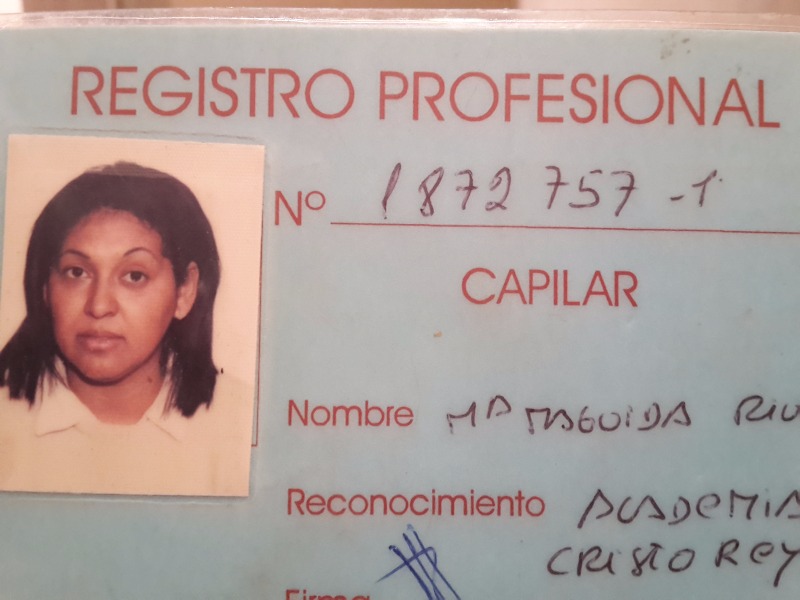 REGISTRO PROFESIONAL
Nº 1872757-1
CAPILAR
Nombre Mª MAGUIDA RIV
Reconocimiento ACADEMIA
CRISTO REY
Firma